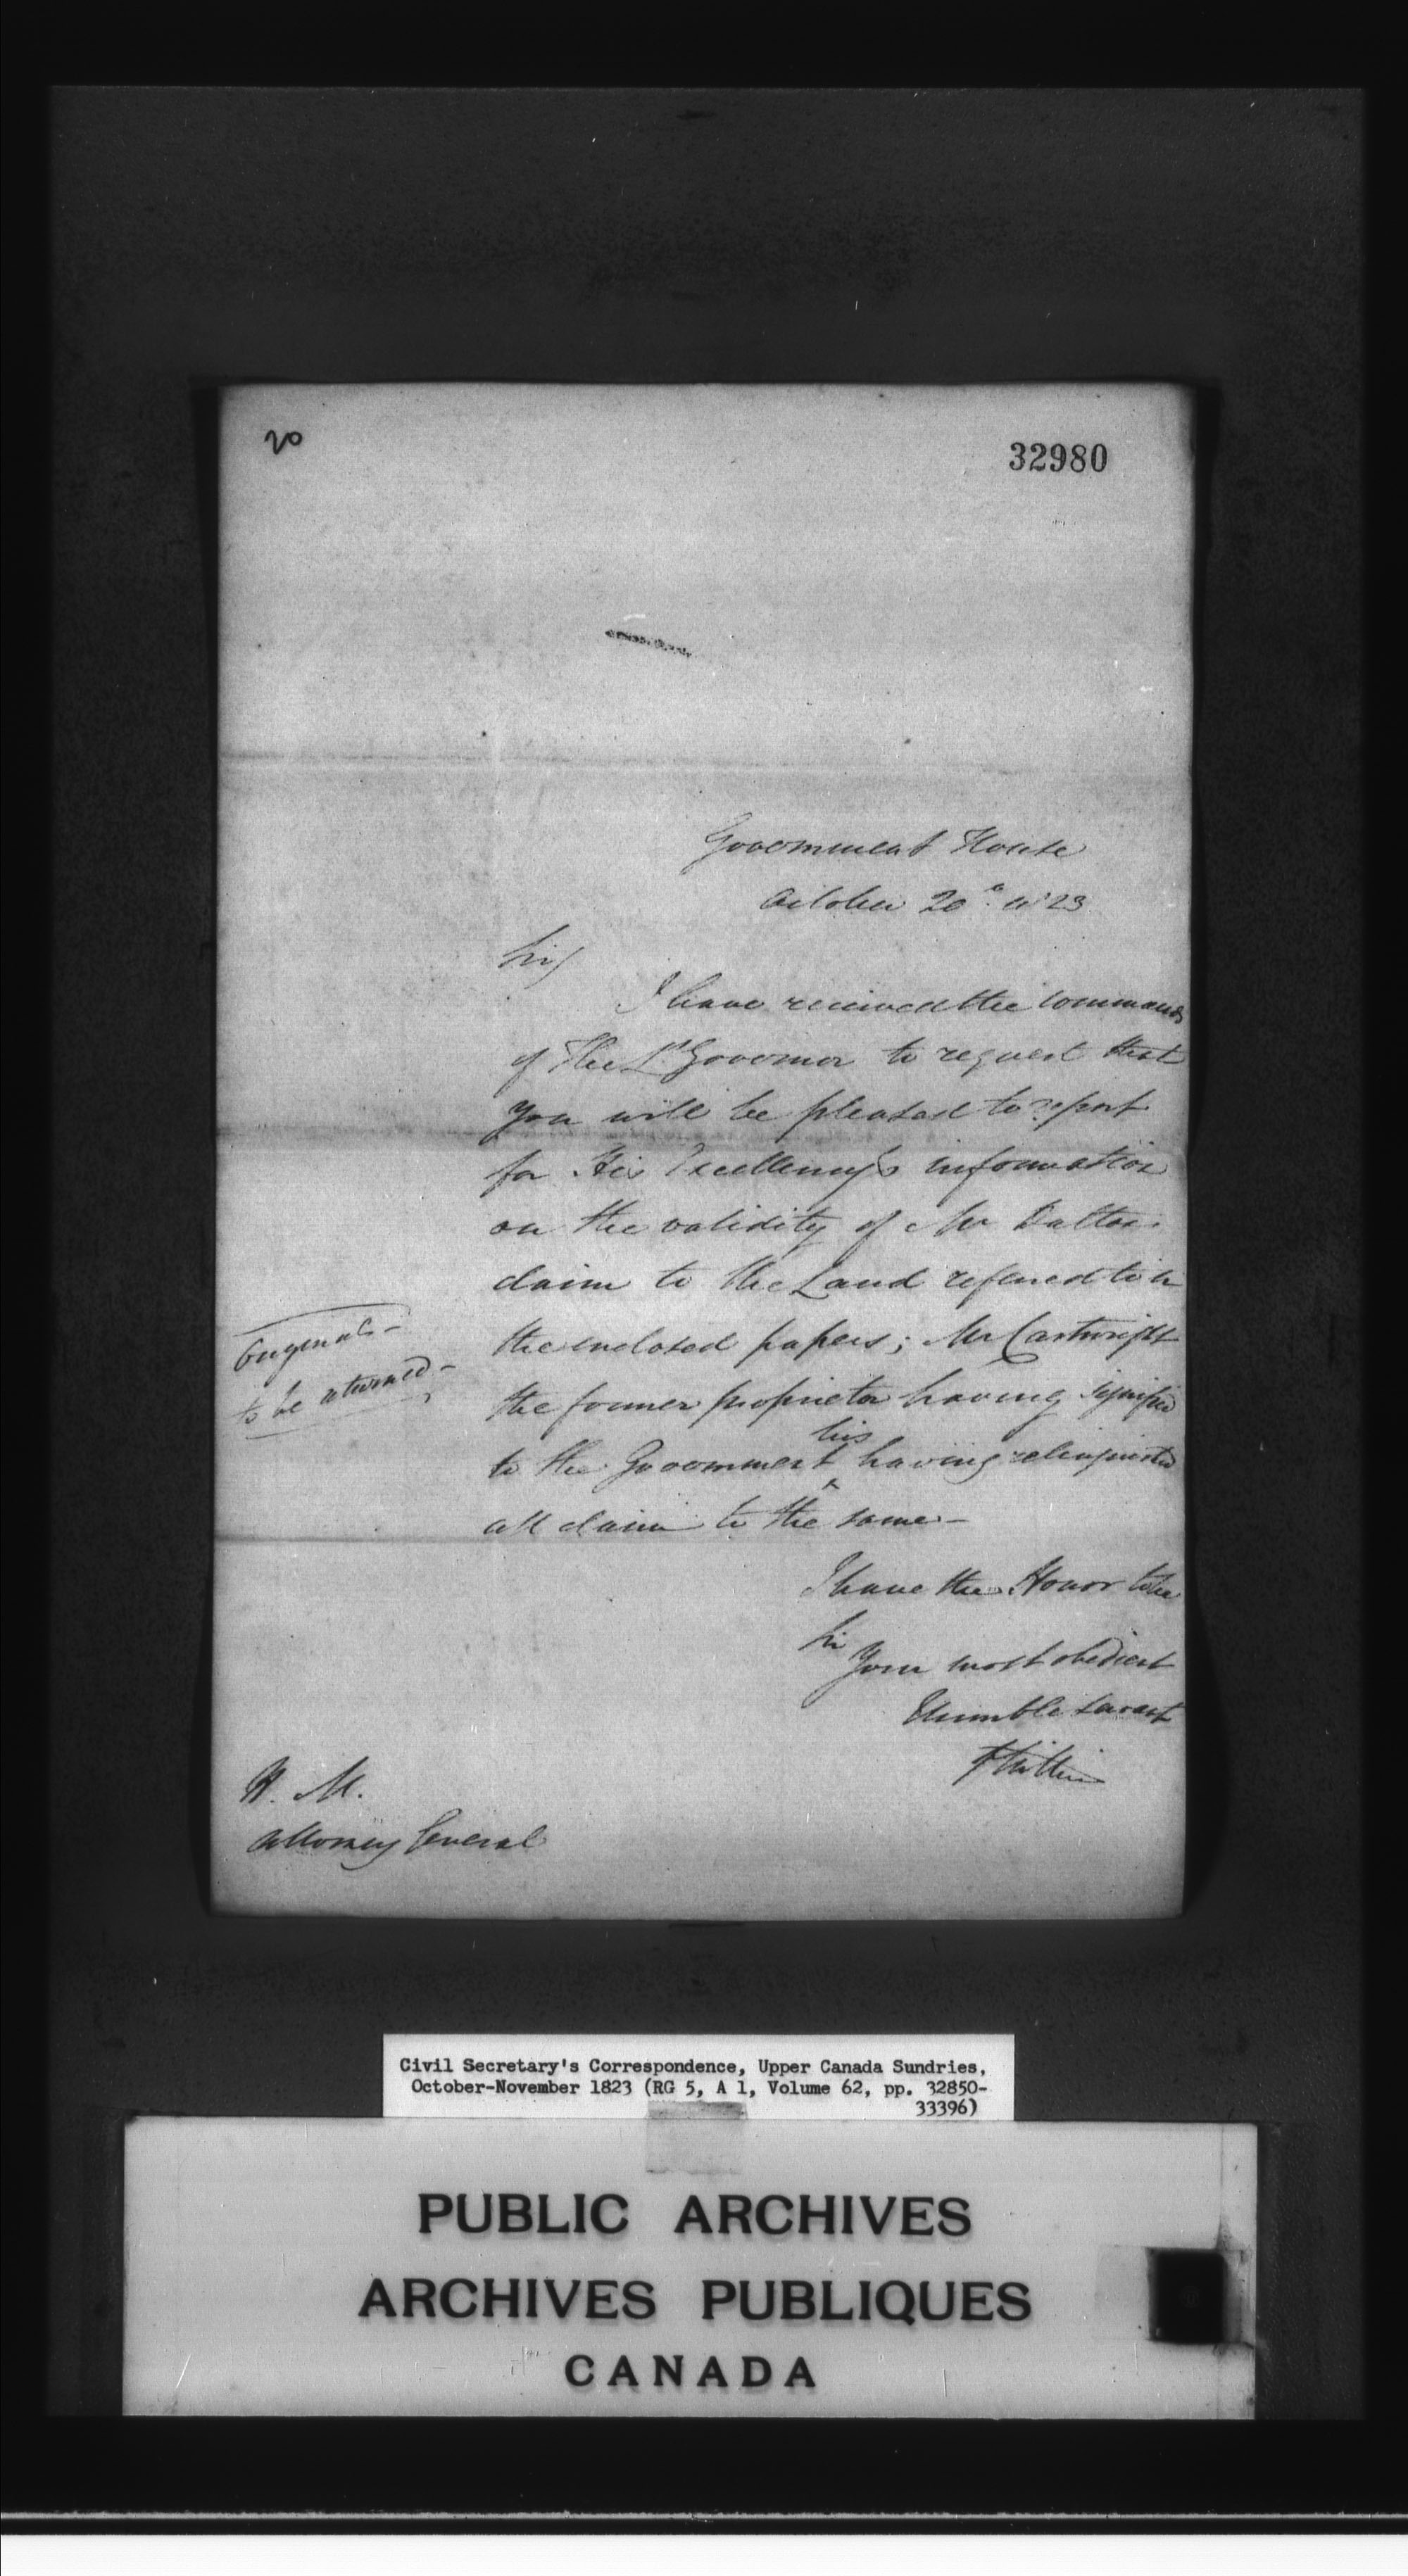 20
32980
Government House
October 20th 1823
Sir/
I have received the commands
of The Lt Governor to request that
you will be pleased to report
for His Excellency's information
on the validity of Mr Daltons
claim to the Land referred to in
the enclosed papers; Mr Cartwright
the former proprietor having signified
to the Government his having relinquished
all claim to the same—
Originals—
to be returned—
I have the Honor to be
Sir
Your most obedient
Humble Servant
H. M.
Attorney General
Civil Secretary's Correspondence, Upper Canada Sundries,
October-November 1823 (RG 5, A 1, Volume 62, pp. 32850-
33396)
PUBLIC ARCHIVES
ARCHIVES PUBLIQUES
CANADA